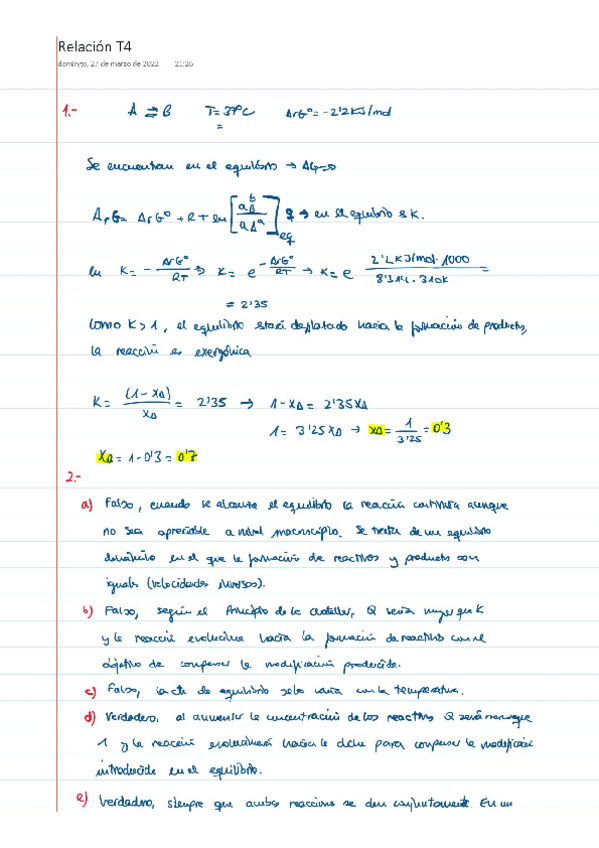 Relación T4
domingo, 27 de marzo de 2022 21:26
1.- A ⇌ B T=37ºC ΔrGº=-2'2KJ/mol
Se encuentran en el equilibrio → ΔG=0
ΔrG= ΔrGº + RT ln [aB^b / aA^a]eq → en el equilibrio es K.
ln K= - ΔrGº/RT → K= e^(-ΔrGº/RT) → K= e^(2'2KJ/mol·1000 / 8'314·310K) =
= 2'35
Como K>1, el equilibrio estará desplazado hacia la formación de products,
la reacción es exergónica
K= (1-XA)/XA = 2'35 → 1-XA = 2'35XA
1= 3'25XA → XA = 1/3'25 = 0'3
XB = 1-0'3 = 0'7
2.-
a) Falso, cuando se alcanza el equilibrio la reacción continúa aunque
no sea apreciable a nivel macroscópico. Se trata de un equilibrio
dinámico en el que la formación de reactivos y products son
iguales (velocidades inversas).
b) Falso, según el Principio de Le Chatelier, Q sería mayor que K
y la reacción evoluciona hacia la formación de reactivos con el
objetivo de compensar la modificación producida.
c) Falso, la cte de equilibrio solo varía con la temperatura.
d) Verdadero, al aumentar la concentración de los reactivos Q será menor que
1 y la reacción evolucionará hacia la dcha para compensar la modificación
introducida en el equilibrio.
e) Verdadero, siempre que ambas reacciones se den conjuntamente. En un